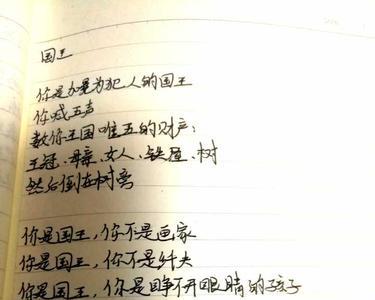 国王
你是加冕为犯人的国王
你喊五声
数你王国唯五的财产：
王冠、母亲、女人、铁屋、树
然后倒在树旁
你是国王，你不是画家
你是国王，你不是纤夫
你是国王，你是睁不开眼睛的孩子